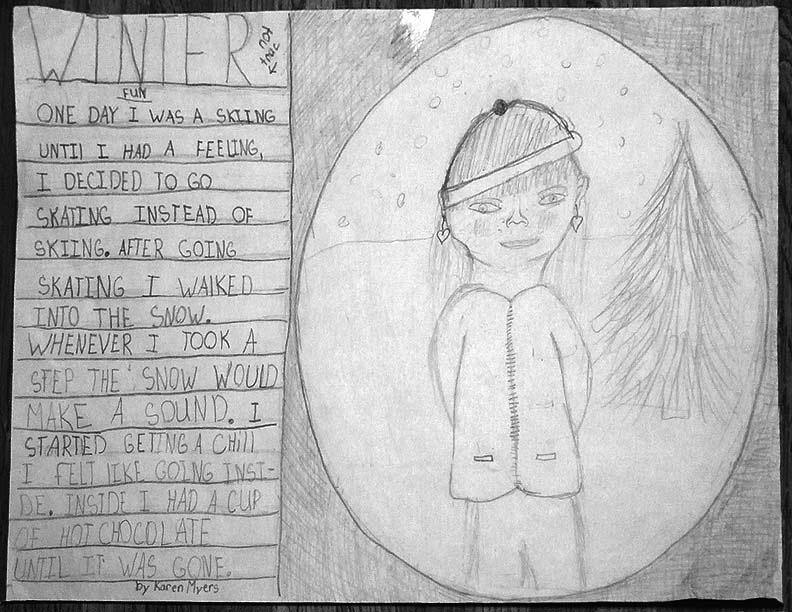 WINTER
not
true
FUN
ONE DAY I WAS A SKIING
UNTIl I HAD A FEELING,
I DECIDED TO GO
SKATING INSTEAD OF
SKIING. AFTER GOING
SKATING I WAlKED
INTO THE SNOW.
WHENEVER I TOOK A
STEP THE SNOW WOULD
MAKE A SOUND. I
STARTED GETING A CHIll
I FELT lIKE GOING INSI-
DE. INSIDE I HAD A CUP
OF HOT CHOCOLATE
UNTIL IT WAS GONE.
by Karen Myers